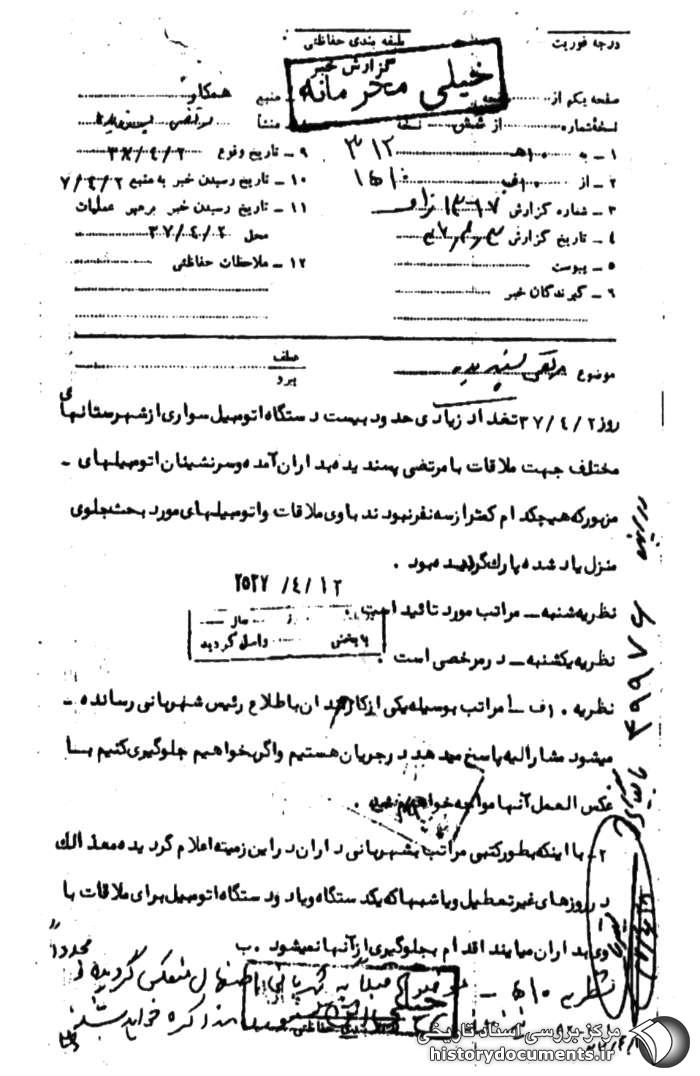 درجه فوریت
طبقه بندی حفاظتی
گزارش خبر
خیلی محرمانه
صفحه یکم از
نسخه شماره از شش نسخه
۱ ـ به ۱۰هـ ۳۱۲
۲ ـ از ۱۰ف
۳ ـ شماره گزارش
۴ ـ تاریخ گزارش
۵ ـ پیوست
۶ ـ گیرندگان خبر
منبع همکار
منشأ مرتضی پسندیده
۹ ـ تاریخ وقوع ۳۷/۴/۲
۱۰ ـ تاریخ رسیدن خبر به منبع ۷/۴/۲
۱۱ ـ تاریخ رسیدن خبر برهبر عملیات
محل ۳۷/۴/۲
۱۲ ـ ملاحظات حفاظتی
موضوع مرتضی پسندیده
عطف
پیرو
روز ۳۷/۴/۲ تعداد زیادی حدود بیست دستگاه اتومبیل سواری از شهرستانهای
مختلف جهت ملاقات با مرتضی پسندیده بداران آمده و سرنشینان اتومبیلهای ـ
مزبور که هیچکدام کمتر از سه نفر نبودند با وی ملاقات و اتومبیلهای مورد بحث جلوی
منزل یاد شده پارک گردیده بود .
۲۵۳۷/۴/۱۲
نظریه شنبه ـ مراتب مورد تائید است .
به بخش واصل گردید
نظریه یکشنبه ـ در مرخصی است .
نظریه ۱۰ف ـ ۱ مراتب بوسیله یکی از کارمندان باطلاع رئیس شهربانی رسانده ـ
میشود مشارالیه پاسخ میدهد در جریان هستیم و اگر بخواهیم جلوگیری کنیم بـا
عکس العمل آنها مواجه خواهیم شد .
۲ـ با اینکه بطور کتبی مراتب بشهربانی داران در این زمینه اعلام گردیده معذالک
در روزهای غیر تعطیل و یا شبها که یکدستگاه و یا دو دستگاه اتومبیل برای ملاقات با
وی بداران میایند اقدام بجلوگیری از آنها نمیشود . ب
نظریه ۱۰هـ ـ شهربانی اصفهان منعکس گردیده و مجدداً
مذاکره خواهد شد
خیلی محرمانه
طبقه بندی حفاظتی
۳۹۹۷۶
مرکز بررسی اسناد تاریخی
historydocuments.ir